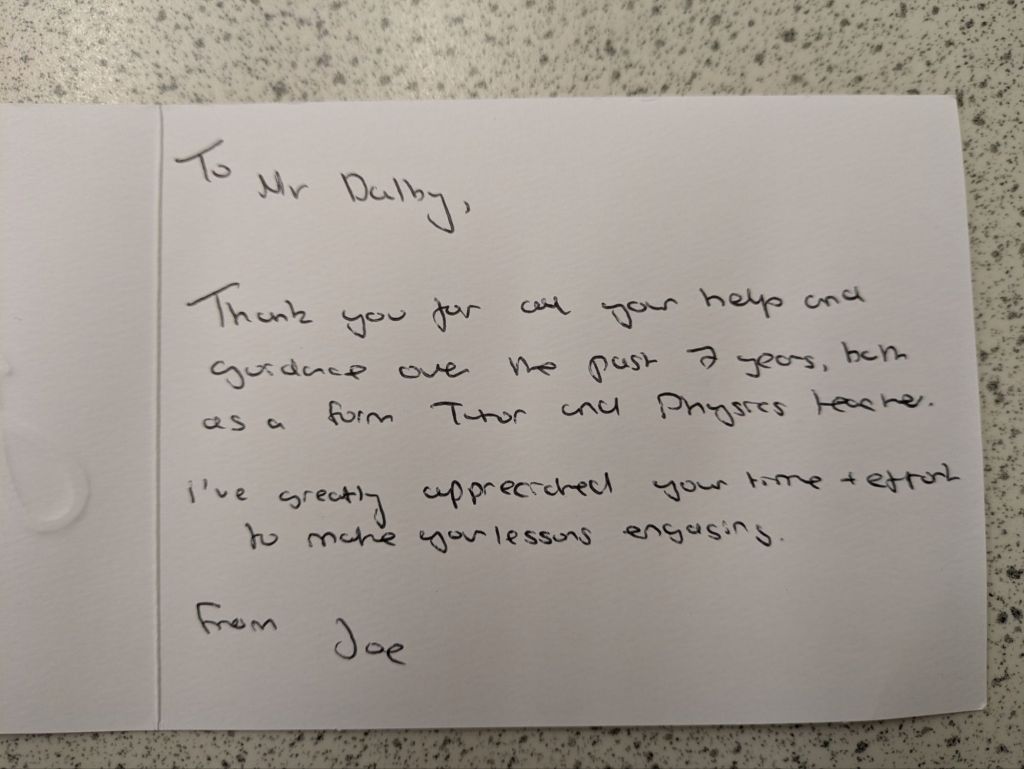 To Mr Dalby,
Thank you for all your help and
guidance over the past 7 years, both
as a form Tutor and Physics teacher.
i've greatly appreciated your time + effort
to make your lessons engaging.
From Joe